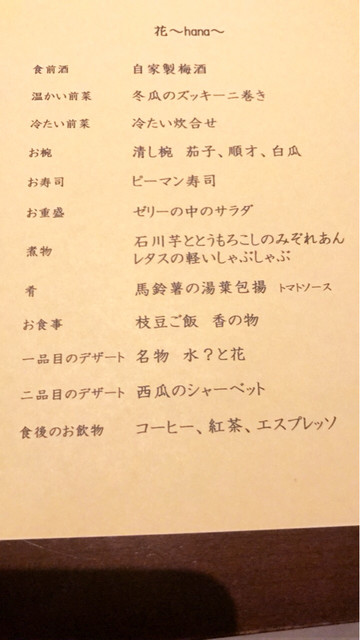 花〜hana〜
食前酒 自家製梅酒
温かい前菜 冬瓜のズッキーニ巻き
冷たい前菜 冷たい炊合せ
お椀 清し椀 茄子、順才、白瓜
お寿司 ピーマン寿司
お重盛 ゼリーの中のサラダ
煮物 石川芋ととうもろこしのみぞれあん
レタスの軽いしゃぶしゃぶ
肴 馬鈴薯の湯葉包揚 トマトソース
お食事 枝豆ご飯 香の物
一品目のデザート 名物 水？と花
二品目のデザート 西瓜のシャーベット
食後のお飲物 コーヒー、紅茶、エスプレッソ